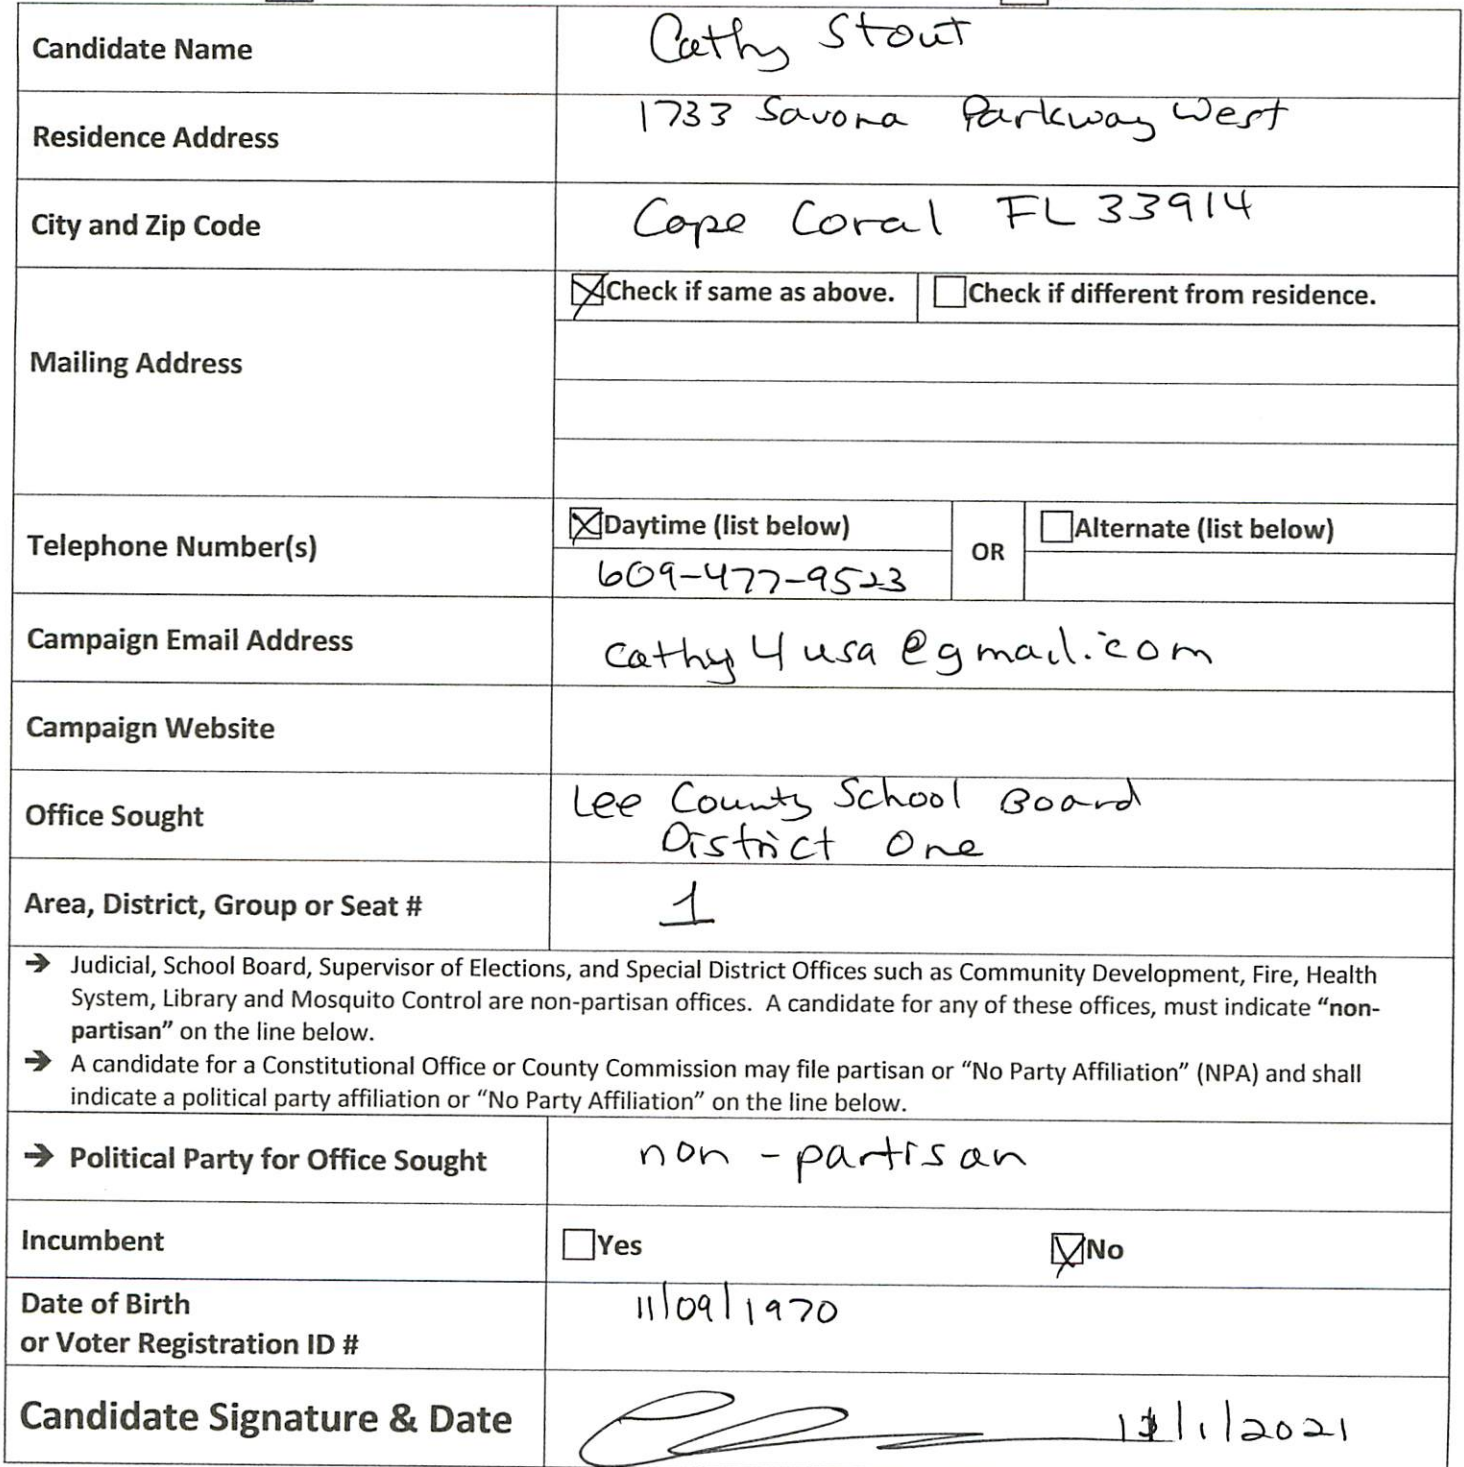 Candidate Name Cathy Stout
Residence Address 1733 Savona Parkway West
City and Zip Code Cape Coral FL 33914
Mailing Address
Check if same as above. Check if different from residence.
Telephone Number(s)
Daytime (list below) OR Alternate (list below)
609-477-9523
Campaign Email Address cathy4usa@gmail.com
Campaign Website
Office Sought Lee County School Board
District One
Area, District, Group or Seat # 1
→ Judicial, School Board, Supervisor of Elections, and Special District Offices such as Community Development, Fire, Health
System, Library and Mosquito Control are non-partisan offices. A candidate for any of these offices, must indicate “non-
partisan” on the line below.
→ A candidate for a Constitutional Office or County Commission may file partisan or “No Party Affiliation” (NPA) and shall
indicate a political party affiliation or “No Party Affiliation” on the line below.
→ Political Party for Office Sought non-partisan
Incumbent Yes No
Date of Birth 11/09/1970
or Voter Registration ID #
Candidate Signature & Date 11/1/2021